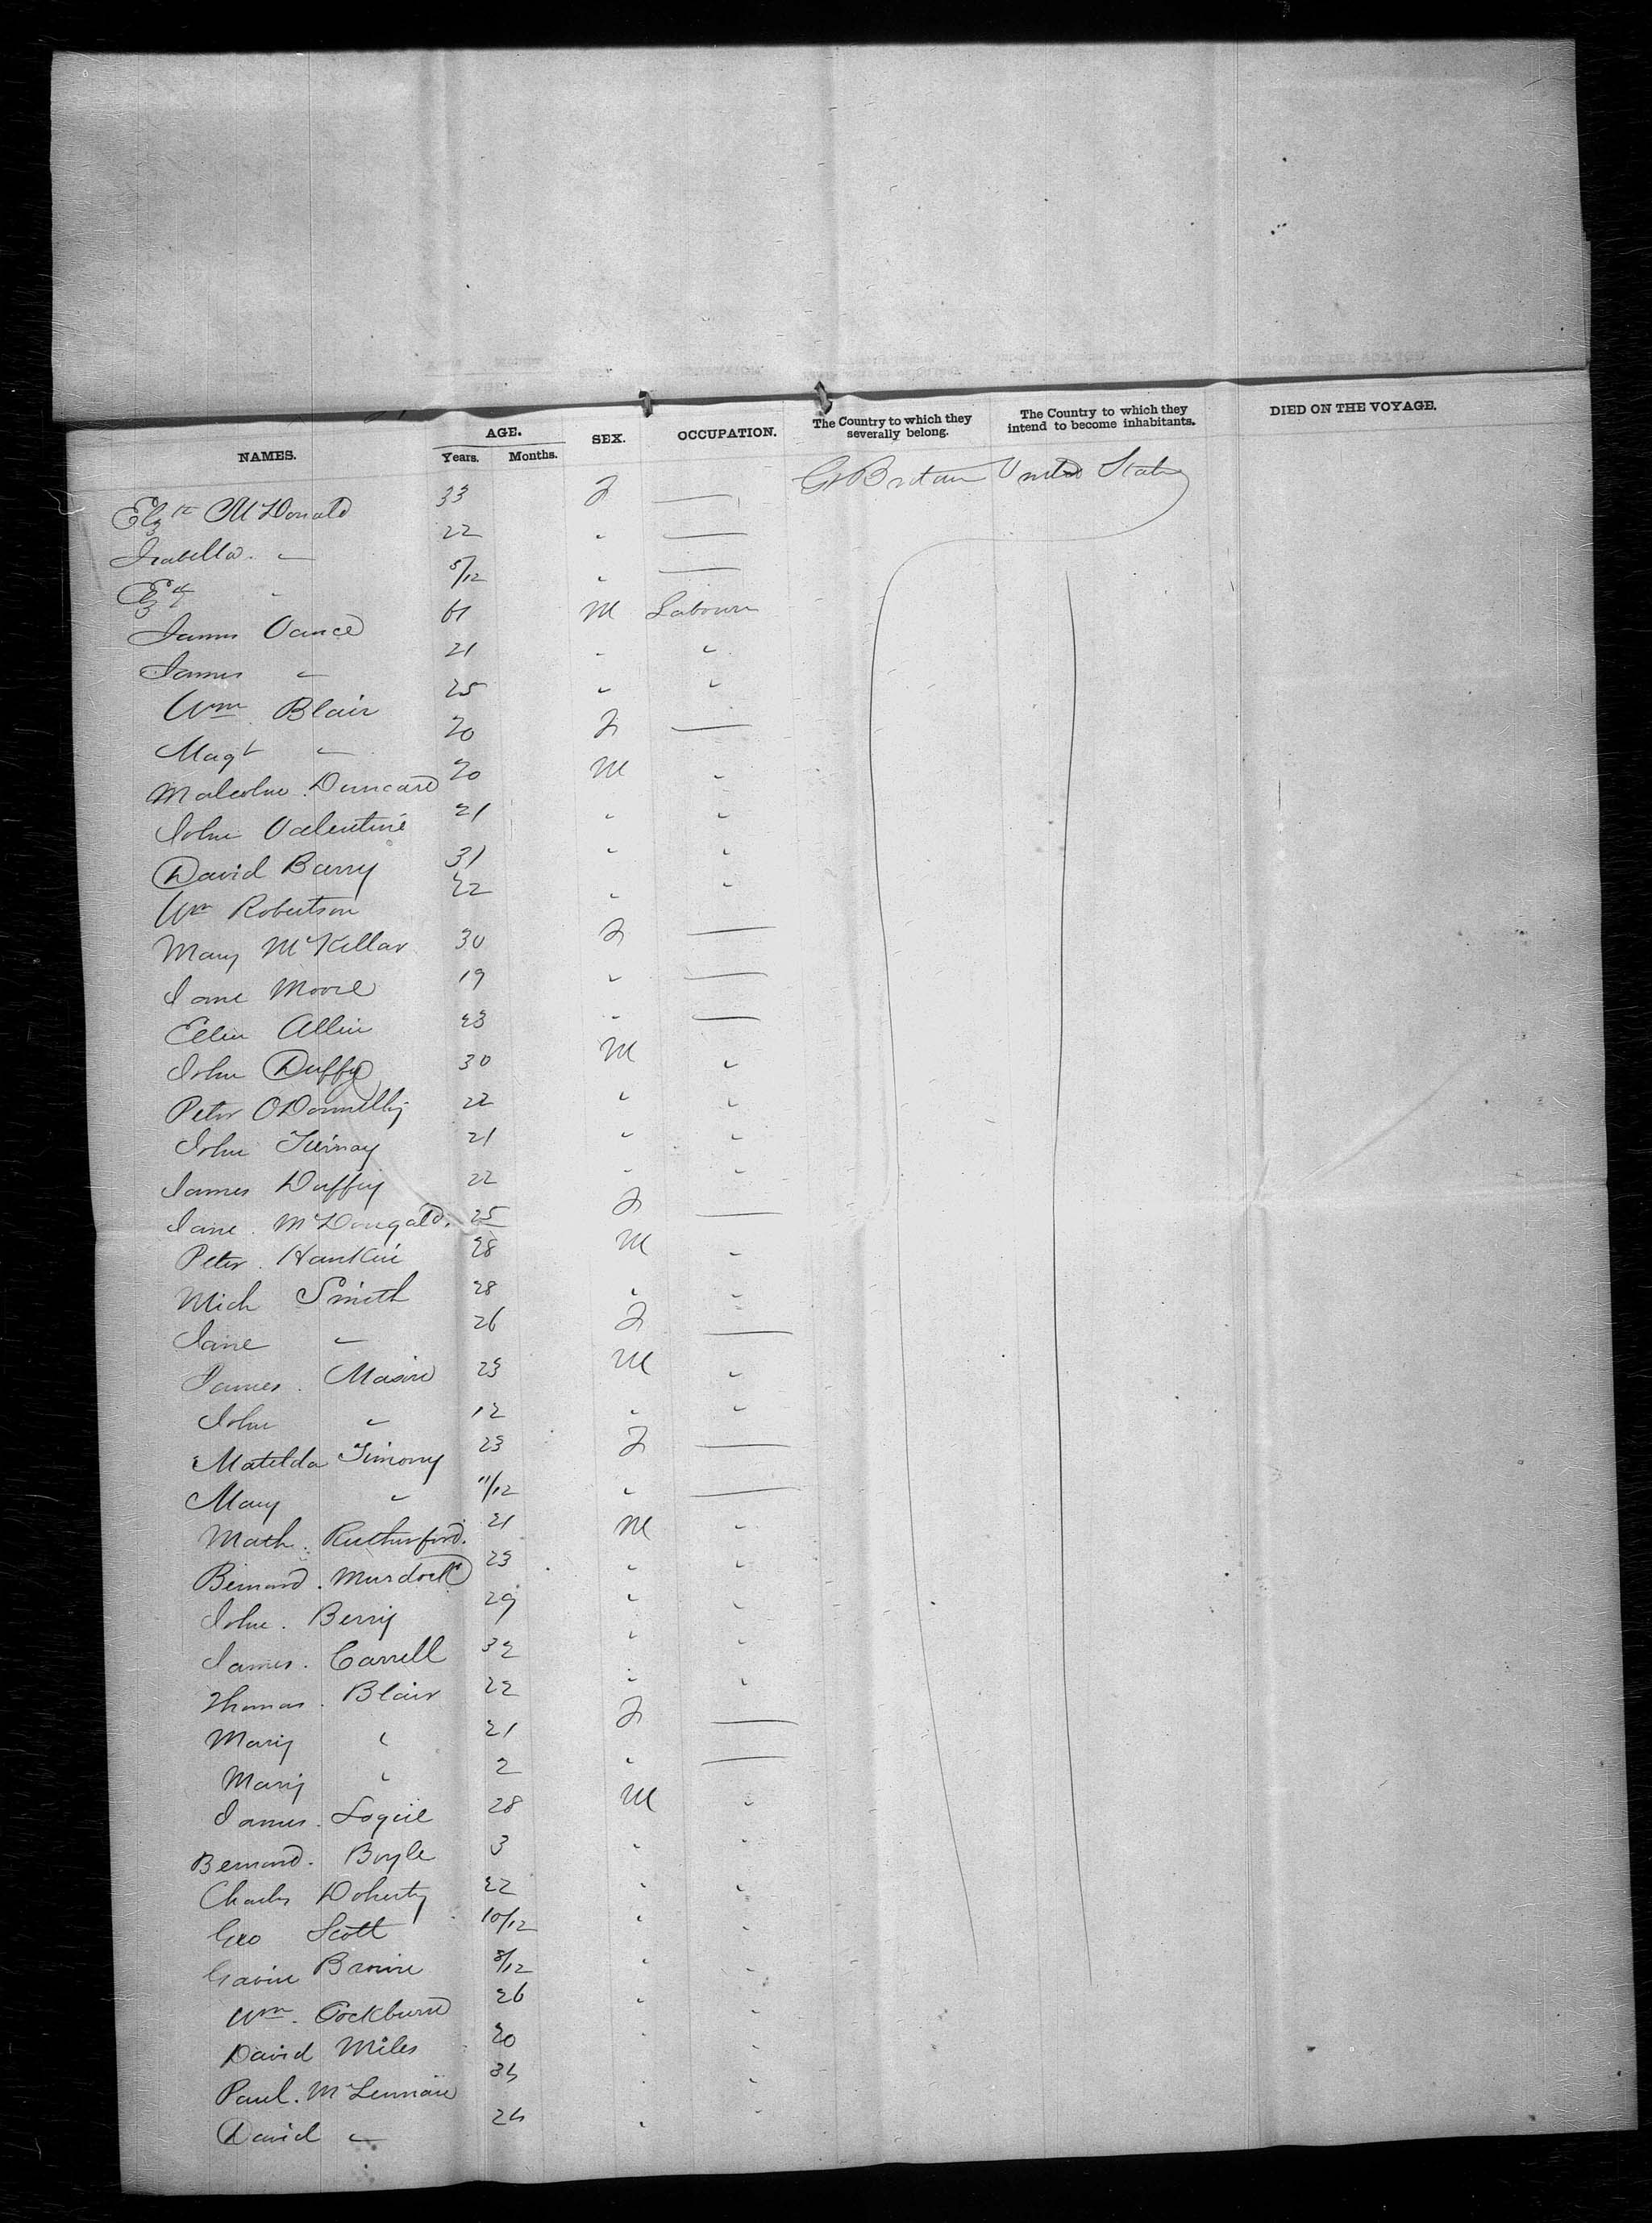 NAMES. AGE. Years. Months. SEX. OCCUPATION. The Country to which they severally belong. The Country to which they intend to become inhabitants. DIED ON THE VOYAGE.
Elzth McDonald 33 F — Gt Britain United States
Isabella " 22 " —
Ezth " 8/12 " —
James Vance 61 M Labourer
James " 21 " "
Wm Blair 25 " "
Magt " 20 F —
Malcolm Duncan 20 M "
John Valentine 21 " "
David Barry 31 " "
Wm Robertson 22 " "
Mary McKellar 30 F —
Jane Moore 19 " —
Ellen Allin 23 " —
John Duffy 30 M "
Peter ODonnelly 22 " "
John Tiernay 21 " "
James Duffy 22 " "
Jane McDougald 25 F —
Peter Hankin 28 M "
Mich Smith 28 " "
Jane " 26 F —
James Mason 23 M "
John " 12 " "
Matilda Timony 23 F —
Mary " 11/12 " —
Math. Rutherford. 21 M "
Bernard. Murdock 23 " "
John. Berry 29 " "
James. Carrell 32 " "
Thomas. Blair 22 " "
Mary " 21 F —
Mary " 2 " —
James. Logue 28 M "
Bernard. Boyle 3 " "
Charles Doherty 22 " "
Geo Scott 10/12 " "
Gavin Brown 8/12 " "
Wm. Cockburn 26 " "
David Miles 20 " "
Paul. McLennan " "
David " " "